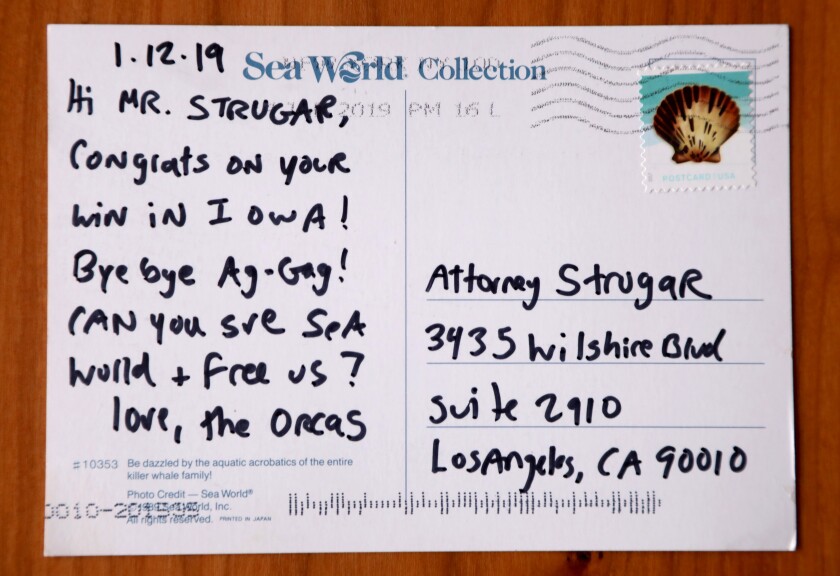 1.12.19
Sea World Collection
Hi MR. STRUGAR,
2019 PM 16 L
Congrats on your
win in Iowa!
Bye bye Ag-Gag!
CAN you sue SeA
World + free us?
love, the ORCAS
POSTCARD/USA
Attorney StrugaR
3435 Wilshire Blvd
suite 2910
Los Angeles, CA 90010
#10353 Be dazzled by the aquatic acrobatics of the entire
killer whale family!
Photo Credit — Sea World®
Sea World, Inc.
All rights reserved. PRINTED IN JAPAN